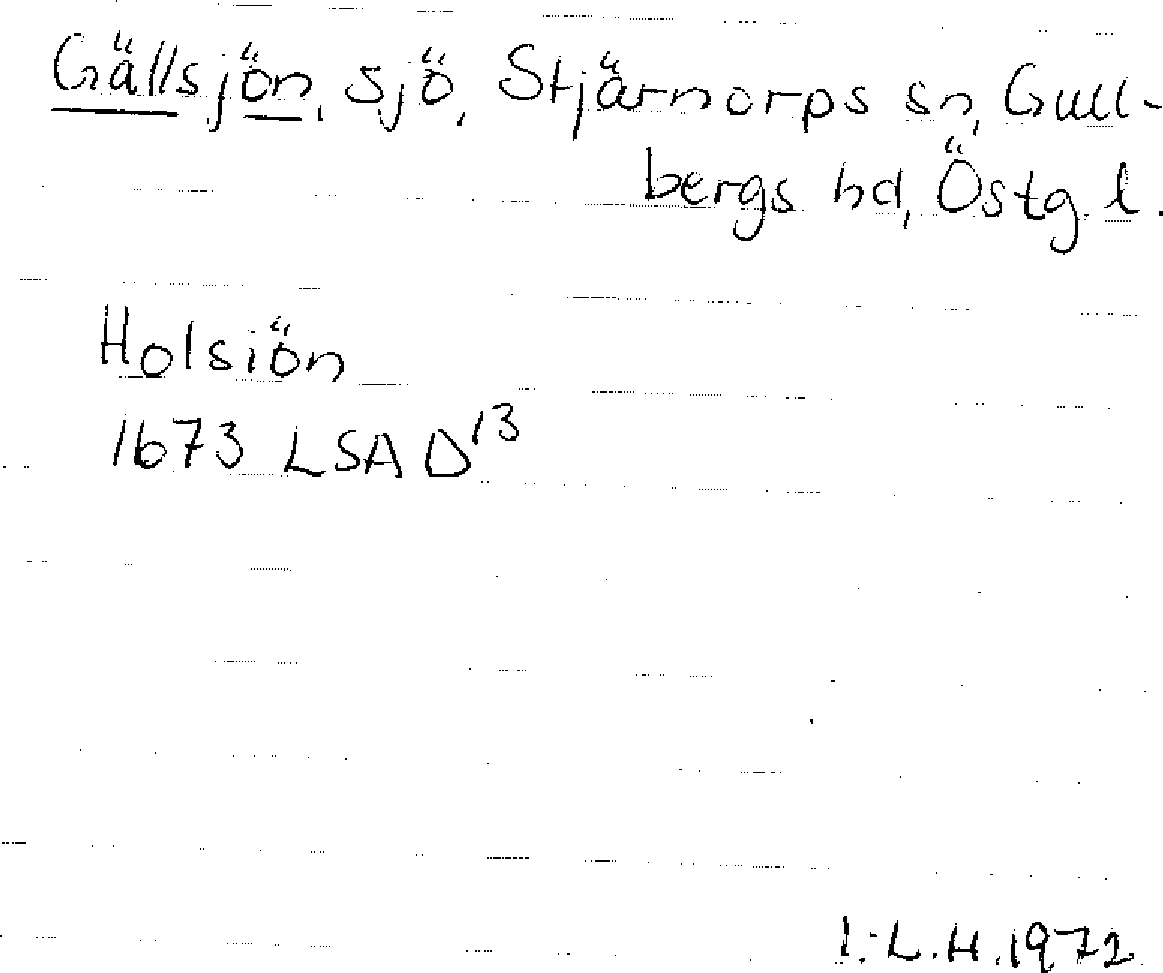 Gällsjön, sjö, Stjärnorps sn, Gull-
bergs hd, Östg. l.
Holsiön
1673 LSA D13
I.-L.H. 1972